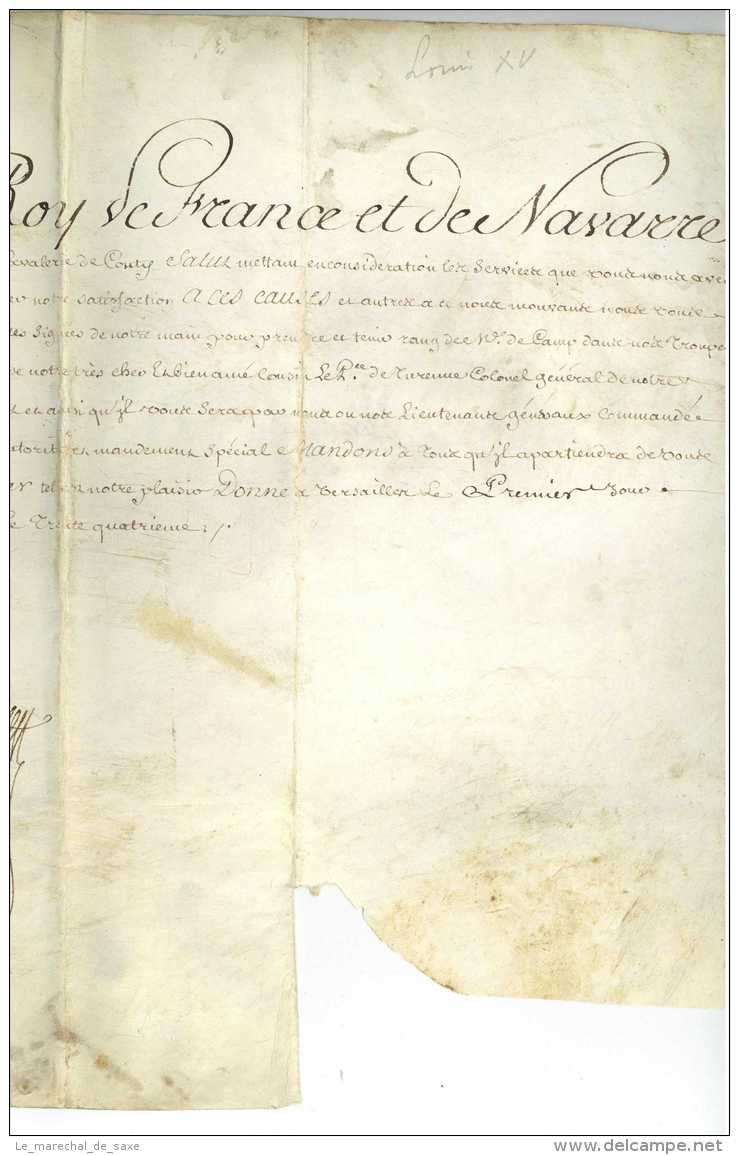 Louis XV
Roy de France et de Navarre
Cavalerie de Conty Salut mettant en consideration les Services que vous nous avez
notre satisfaction A CES CAUSES et autres a ce nous mouvants nous vous
Signés de notre main pour prendre et tenir rang de M.e de Camp dans nos Troupes
notre très cher Et bien amé Cousin Le P.ce de Turenne Colonel général de notre
et ainsi qu'jl vous sera par nous ou nos Lieutenants généraux Commandé
mandement spécial Mandons à tous qu'jl apartiendra de vous
tel est notre plaisir Donné a Versailles Le Premier Jour
Trente quatrieme ./.
Le_marechal_de_saxe
www.delcampe.net